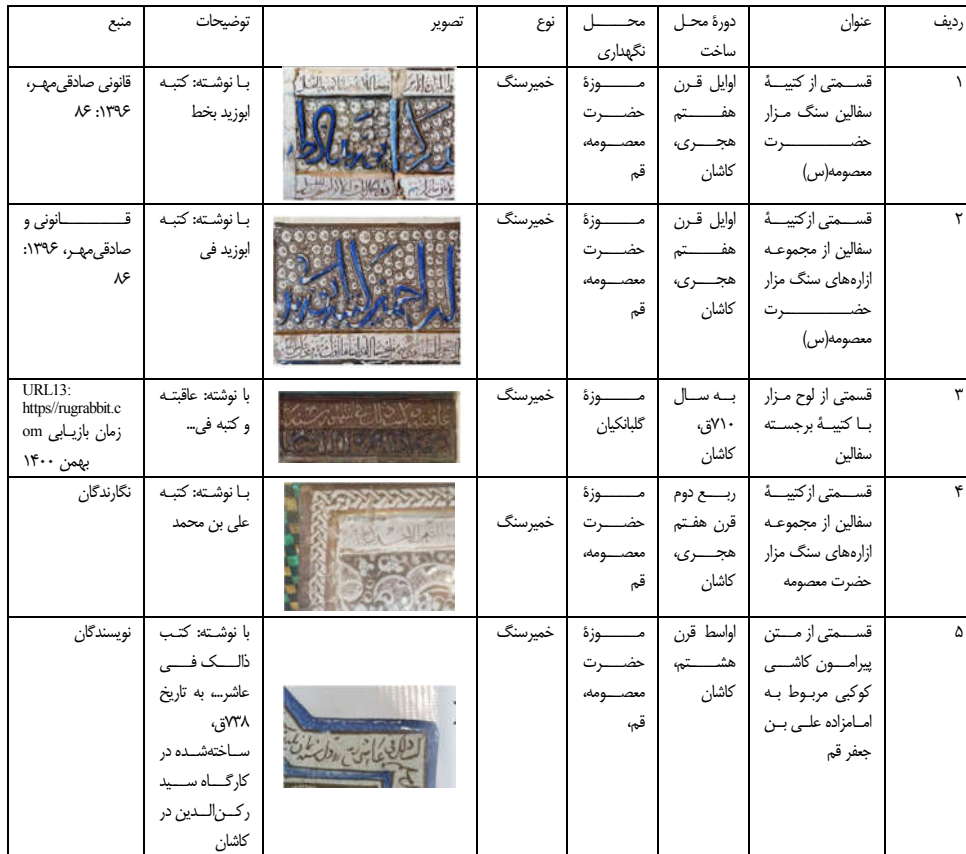 ردیف عنوان دورهٔ محل ساخت محل نگهداری نوع تصویر توضیحات منبع
۱
قسمتی از کتیبهٔ
سفالین سنگ مزار
حضرت
معصومه(س)
اوایل قرن
هفتم
هجری،
کاشان
موزهٔ
حضرت
معصومه،
قم
خمیرسنگ
با نوشته: کتبه
ابوزید بخط
قانونی صادقی‌مهر،
۱۳۹۶: ۸۶
۲
قسمتی از کتیبهٔ
سفالین از مجموعه
ازاره‌های سنگ مزار
حضرت
معصومه(س)
اوایل قرن
هفتم
هجری،
کاشان
موزهٔ
حضرت
معصومه،
قم
خمیرسنگ
با نوشته: کتبه
ابوزید فی
قانونی و
صادقی‌مهر، ۱۳۹۶:
۸۶
۳
قسمتی از لوح مزار
با کتیبهٔ برجسته
سفالین
به سال
۷۱۰ق،
کاشان
موزهٔ
گلبانکیان
خمیرسنگ
با نوشته: عاقبته
و کتبه فی...
URL13:
https//rugrabbit.c
om زمان بازیابی
بهمن ۱۴۰۰
۴
قسمتی از کتیبهٔ
سفالین از مجموعه
ازاره‌های سنگ مزار
حضرت معصومه
ربع دوم
قرن هفتم
هجری،
کاشان
موزهٔ
حضرت
معصومه،
قم
خمیرسنگ
با نوشته: کتبه
علی بن محمد
نگارندگان
۵
قسمتی از متن
پیرامون کاشی
کوکبی مربوط به
امامزاده علی بن
جعفر قم
اواسط قرن
هشتم،
کاشان
موزهٔ
حضرت
معصومه،
قم،
خمیرسنگ
با نوشته: کتب
ذالک فی
عاشر...، به تاریخ
۷۳۸ق،
ساخته‌شده در
کارگاه سید
رکن‌الدین در
کاشان
نویسندگان